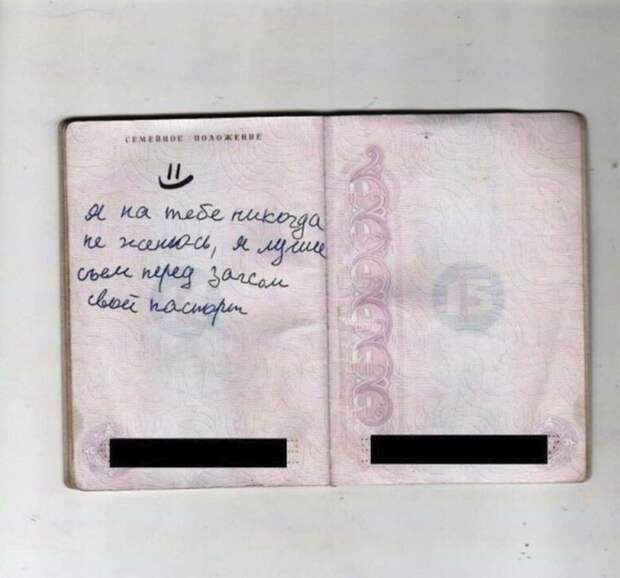 СЕМЕЙНОЕ ПОЛОЖЕНИЕ
я на тебе никогда
не женюсь, я лучше
съем перед загсом
свой паспорт
15